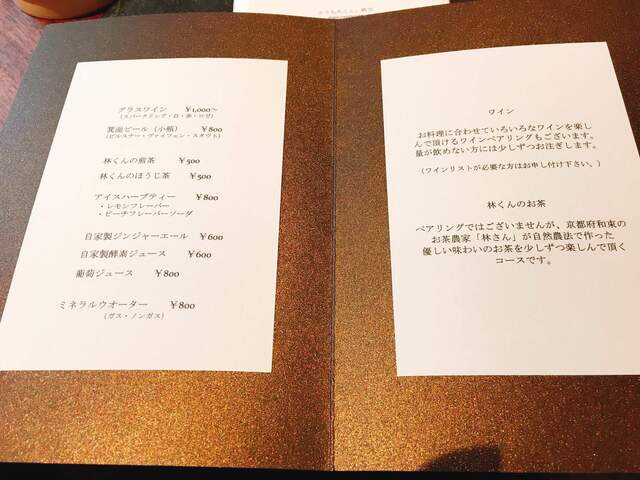 グラスワイン ￥1,000～
（スパークリング・白・赤・ロゼ）
箕面ビール（小瓶） ￥800
（ピルスナー・ヴァイツェン・スタウト）
林くんの煎茶 ￥500
林くんのほうじ茶 ￥500
アイスハーブティー ￥800
・レモンフレーバー
・ピーチフレーバーソーダ
自家製ジンジャーエール ￥600
自家製酵素ジュース ￥600
葡萄ジュース ￥800
ミネラルウオーター ￥800
（ガス・ノンガス）
ワイン
お料理に合わせていろいろなワインを楽し
んで頂けるワインペアリングもございます。
量が飲めない方には少しずつお注ぎします。
（ワインリストが必要な方はお申し付け下さい。）
林くんのお茶
ペアリングではございませんが、京都府和束の
お茶農家「林さん」が自然農法で作った
優しい味わいのお茶を少しずつ楽しんで頂く
コースです。